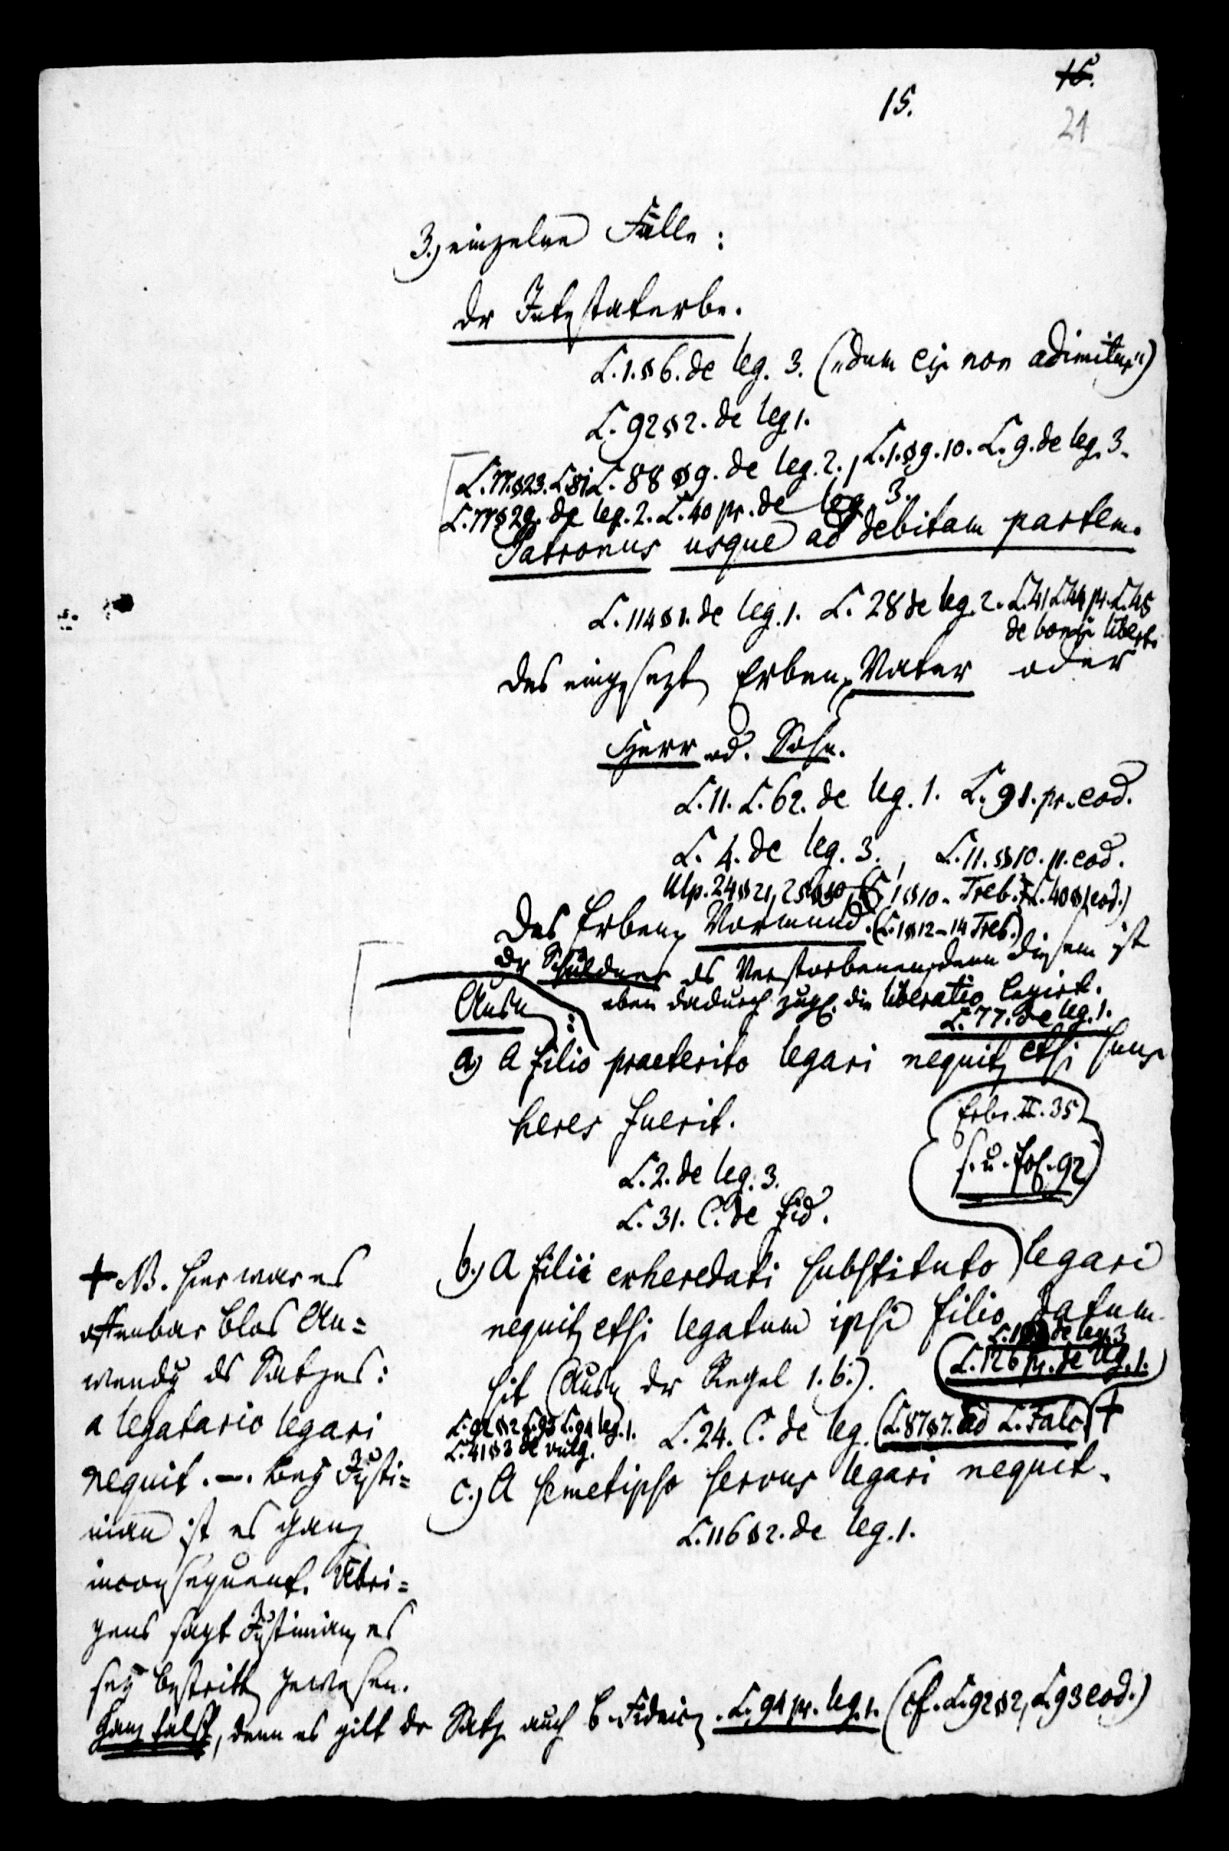 15.
15.
21
3.) einzelne Fälle:
Dr Intestaterbe.
L.1.§6. de leg. 3. („dum eis non adimitur“)
L. 92 §2. de leg 1.
L.77.§23. L.81 L. 88 §9. de leg. 2., L.1.§9.10. L.9. de leg. 3.
L.77 §29. de leg. 2. L.40 pr. de leg. 3.
Patronus usque ad debitam partem.
L. 114 §1. de leg. 1. L. 28 de leg. 2. L.41 L.44 pr. L.45
de bonis libert.
Des eingesezt Erben Vater oder
Herr od. Sohn.
L.11. L.62. de leg. 1. L. 91. pr. eod.
L. 4. de leg. 3., L.11.§10.11. eod.
Ulp. 24 §21, 25 §10, L 1 §10. Treb. L.40 §1 eod.)
Des Erben Vormund. (L.1 §12-14 Treb.)
Dr Schuldner ds Verstorbenen, denn diesem ist
eben dadurch zugl. die liberatio legirt.
L. 77. de leg. 1.
Ausn:
a) A filio praeterito legari nequit, etsi suus
heres fuerit.
Erbr. II. 35
s. u. fol. 92
L.2. de leg. 3.
L. 31. C. de fid.
b.) A filii exheredati substituto legari
nequit, etsi legatum ipsi filio datum
L. 103 de leg. 3
sit (Ausn dr Regel 1.b.). L.126 pr. de leg. 1.
L.92 §2 L.93 L.94 leg. 1.
L.41 §3 de vulg. L.24. C. de leg. (L.87 §7. ad L. Falc.) +
c.) A semetipso servus legari nequit.
L.116 §2. de leg. 1.
+ NB. hier war es
offenbar blos An=
wendg ds Satzes:
a legatario legari
nequit. —. bey Justi=
nian ist es ganz
inconsequent. Übri=
gens sagt Justinian, es
sey bestritt gewesen.
Ganz falsch, denn es gilt dr Satz auch b. Fideic. L.94 pr. leg. 1. (cf. L.92 §2, L.93 eod.)